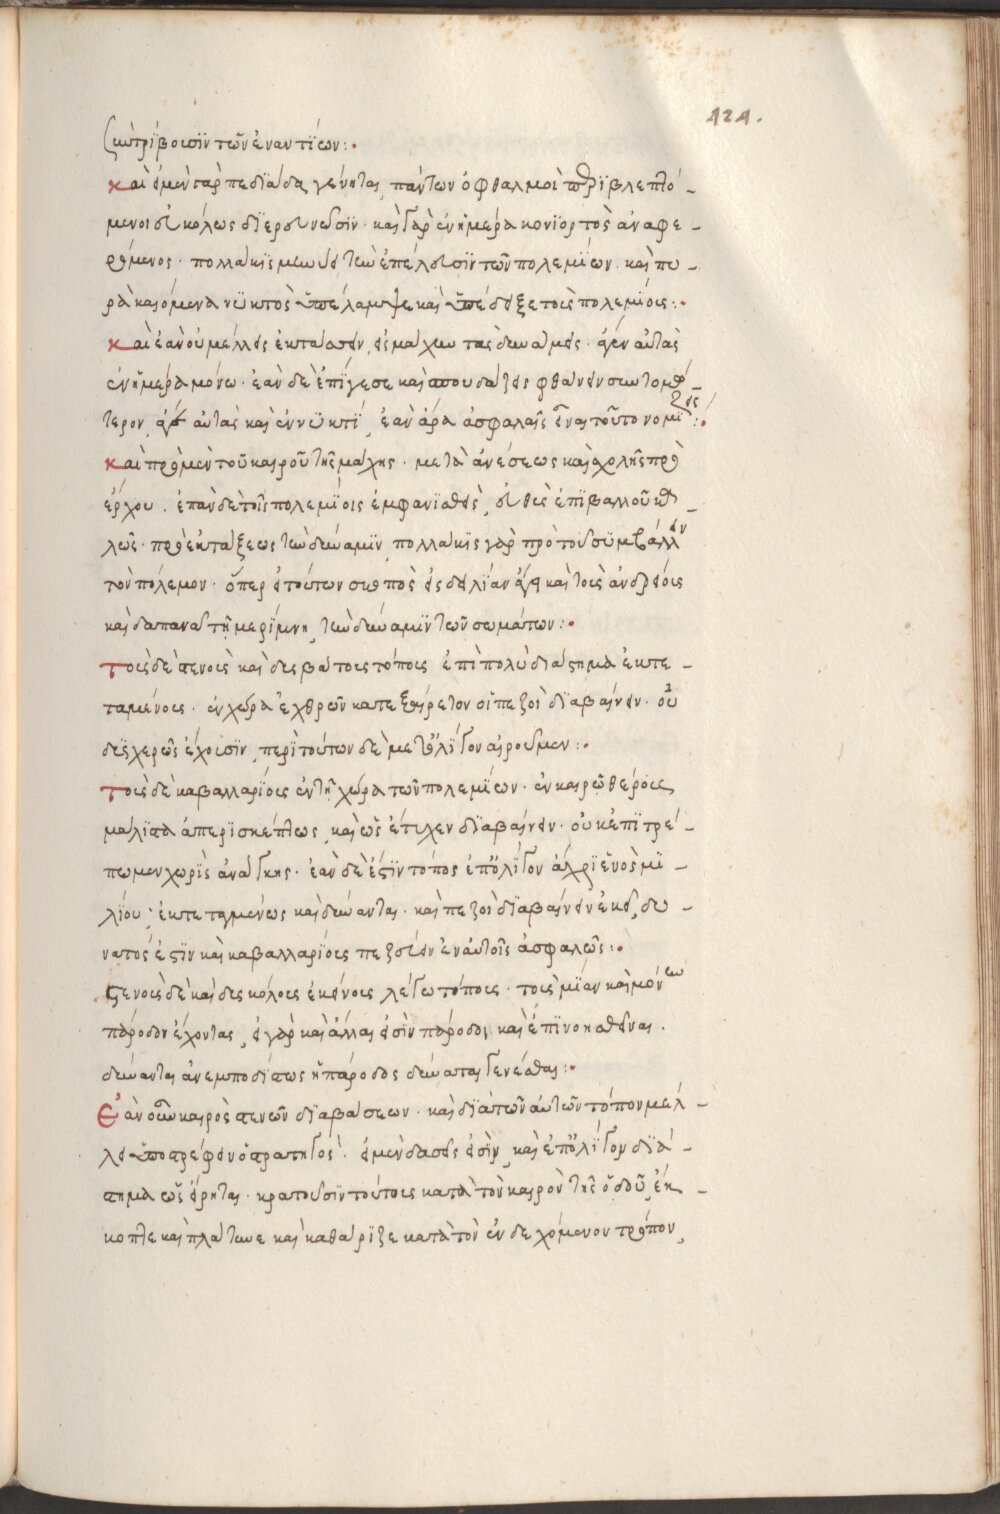 121.
συντρίβουσιν τῶν ἐναντίων :·
καὶ εἰ μὲν γὰρ πεδιάδα γένηται, πάντων ὀφθαλμοὶ περιβλεπό-
μενοι εὐκόλως διερευνῶσιν · καὶ γὰρ ἐν ἡμέρα κονιορτὸς ἀναφε-
ρόμενος · πολλάκις μηνύει τὴν ἐπέλευσιν τῶν πολεμίων καὶ πυ-
ρὰ καιόμενα νυκτὸς ὑπέλαμψε καὶ ὑπέδειξε τοὺς πολεμίους :·
καὶ ἐὰν οὐ μέλλεις ἐκτάσσειν εἰς μάχην τὰς δυνάμεις · ἄγειν αὐτὰς
ἐν ἡμέρα μόνω · ἐὰν δὲ ἐπίγεσε καὶ σπουδάζεις φθάνειν συντομώ-
τερον, ἄγε αὐτὰς καὶ ἐν νυκτὶ, ἐὰν ἄρα ἀσφαλὲς εἶναι τοῦτο νομίζεις :·
καὶ πρὸ μὲν τοῦ καιροῦ τῆς μάχης · μετὰ ἀνέσεως καὶ σχολῆς προ
έρχου . ἐπὰν δὲ τοῖς πολεμίοις ἐμφανισθεὶς, εὐθεὶς ἐπιβαλλοῦ
πρὸ ἐκτάξεως τὴν δύναμιν πολλάκις γὰρ πρὸ τοῦ συμβάλλειν
τὸν πόλεμον · ὅπερ ὁ τούτων σκοπὸς εἰς δειλίαν ἄγει καὶ τοὺς ἀνδρείους
καὶ δαπανᾶ τῆ μερίμνη, τὴν δύναμιν τῶν σωμάτων :·
τοὺς δὲ στενοὺς καὶ δυσβάτους τόπους ἐπὶ πολὺ διάστημα ἐκτε-
ταμένους · ἐν χώρα ἐχθρῶν κατεξαίρετον οἱ πεζοὶ διαβαίνειν · οὐ
δυσχερῶς ἔχουσιν, περὶ τούτων δὲ μετ' ὀλίγον αἰροῦμεν :·
τοὺς δὲ καβαλλαρίους ἐν τῆ χώρα τῶν πολεμίων · ἐν καιρῶ θέρους
μάλιστα ἀπερισκέπτως, καὶ ὡς ἔτυχεν διαβαίνειν · οὐκ ἐπιτρέ-
πωμεν χωρὶς ἀνάγκης · ἐὰν δὲ ἐστὶν τόπος ἐπ' ὀλίγον ἄχρι ἑνὸς μι-
λίου, ἐκτεταμένως καὶ δύναται · καὶ πεζοὶ διαβαίνειν ἐκεῖ, δυ-
νατὸς ἐστὶν καὶ καβαλλαρίους πεζεύειν ἐν αὐτοῖς ἀσφαλῶς :·
στενοὺς δὲ καὶ δυσκόλους ἐκείνους λέγω τόπους · τοὺς μίαν καὶ μόνην
πάροδον ἔχοντας, εἰ γὰρ καὶ ἄλλαι εἰσὶν πάροδοι καὶ ἐπινοηθῆναι.
δύνανται ἀνεμποδίστως ἡ πάροδος δύναται γενέσθαι :·
Ἐὰν οὖν καιρὸς στενῶν διαβάσεων · καὶ διὰ τῶν αὐτῶν τόπον μέλ-
λει ὑποστρέφειν ὁ στρατηγός · εἰ μὲν δασεῖς εἰσὶν, καὶ ἐπ' ὀλίγον διά-
στημα ὡς εἴρηται · κρατοῦσιν τούτους κατὰ τὸν καιρὸν τῆς ὁδοῦ, ἔκ-
κοπτε καὶ πλάτυνε καὶ καθάριζε κατὰ τὸν ἐνδεχόμενον τρόπον,